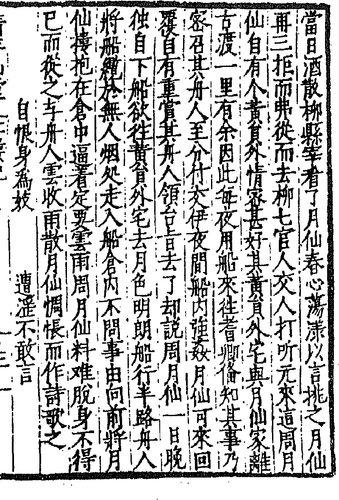 當日酒散柳縣宰看了月仙春心蕩漾以言挑之月仙
再三拒而弗從而去柳七官人交人打听元來這周月
仙自有个黃員外情密甚好其黃員外宅與月仙家離
古渡一里有余因此每夜用船來往耆卿俻知其事乃
密召其舟人至分付交伊夜間船内強姦月仙可來回
覆自有重賞其舟人領台旨去了却説周月仙一日晚
独自下船欲往黃員外宅去月色明朗船行半路舟人
將船纜於無人烟处走入船倉内不問事由向前將月
仙摟抱在倉中逼着定要雲雨周月仙料难脱身不得
已而從之与舟人雲收雨散月仙惆悵而作詩歌之
自恨身爲妓 遭滛不敢言